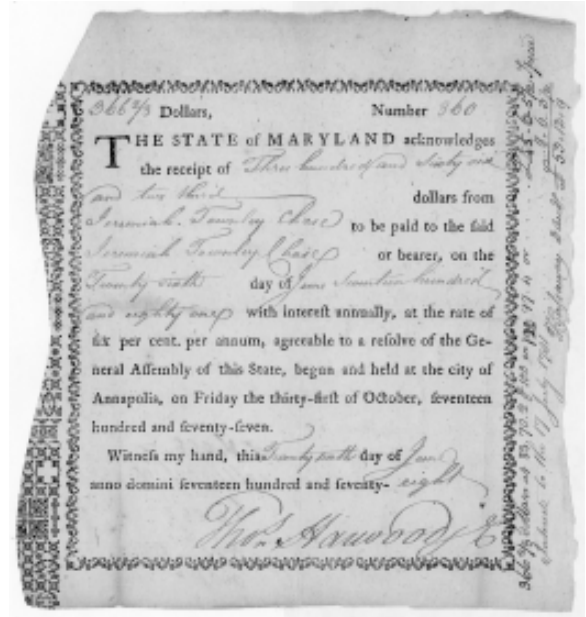 366 2/3 Dollars, Number 360
THE STATE of MARYLAND acknowledges
the receipt of Three hundred and Sixty six
and two third dollars from
Jeremiah Townley Chase to be paid to the ſaid
Jeremiah Townley Chase or bearer, on the
Twenty sixth day of June Seventeen hundred
and eighty one with intereſt annually, at the rate of
ſix per cent. per annum, agreeable to a reſolve of the Ge-
neral Aſſembly of this State, begun and held at the city of
Annapolis, on Friday the thirty-firſt of October, ſeventeen
hundred and ſeventy-ſeven.
Witneſs my hand, this Twenty sixth day of June
anno domini ſeventeen hundred and ſeventy- eight
Thos. Harwood
366 2/3 dollars at
Interest to the July